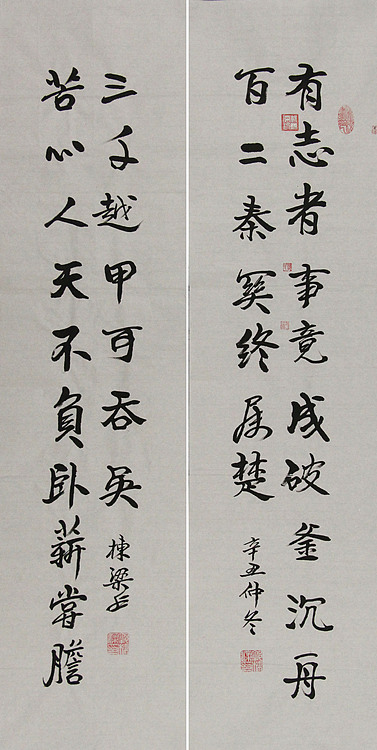 有志者事竟成破釜沉舟
百二秦関終属楚
辛丑仲冬
苦心人天不負卧薪嘗膽
三千越甲可吞吴
棟梁书